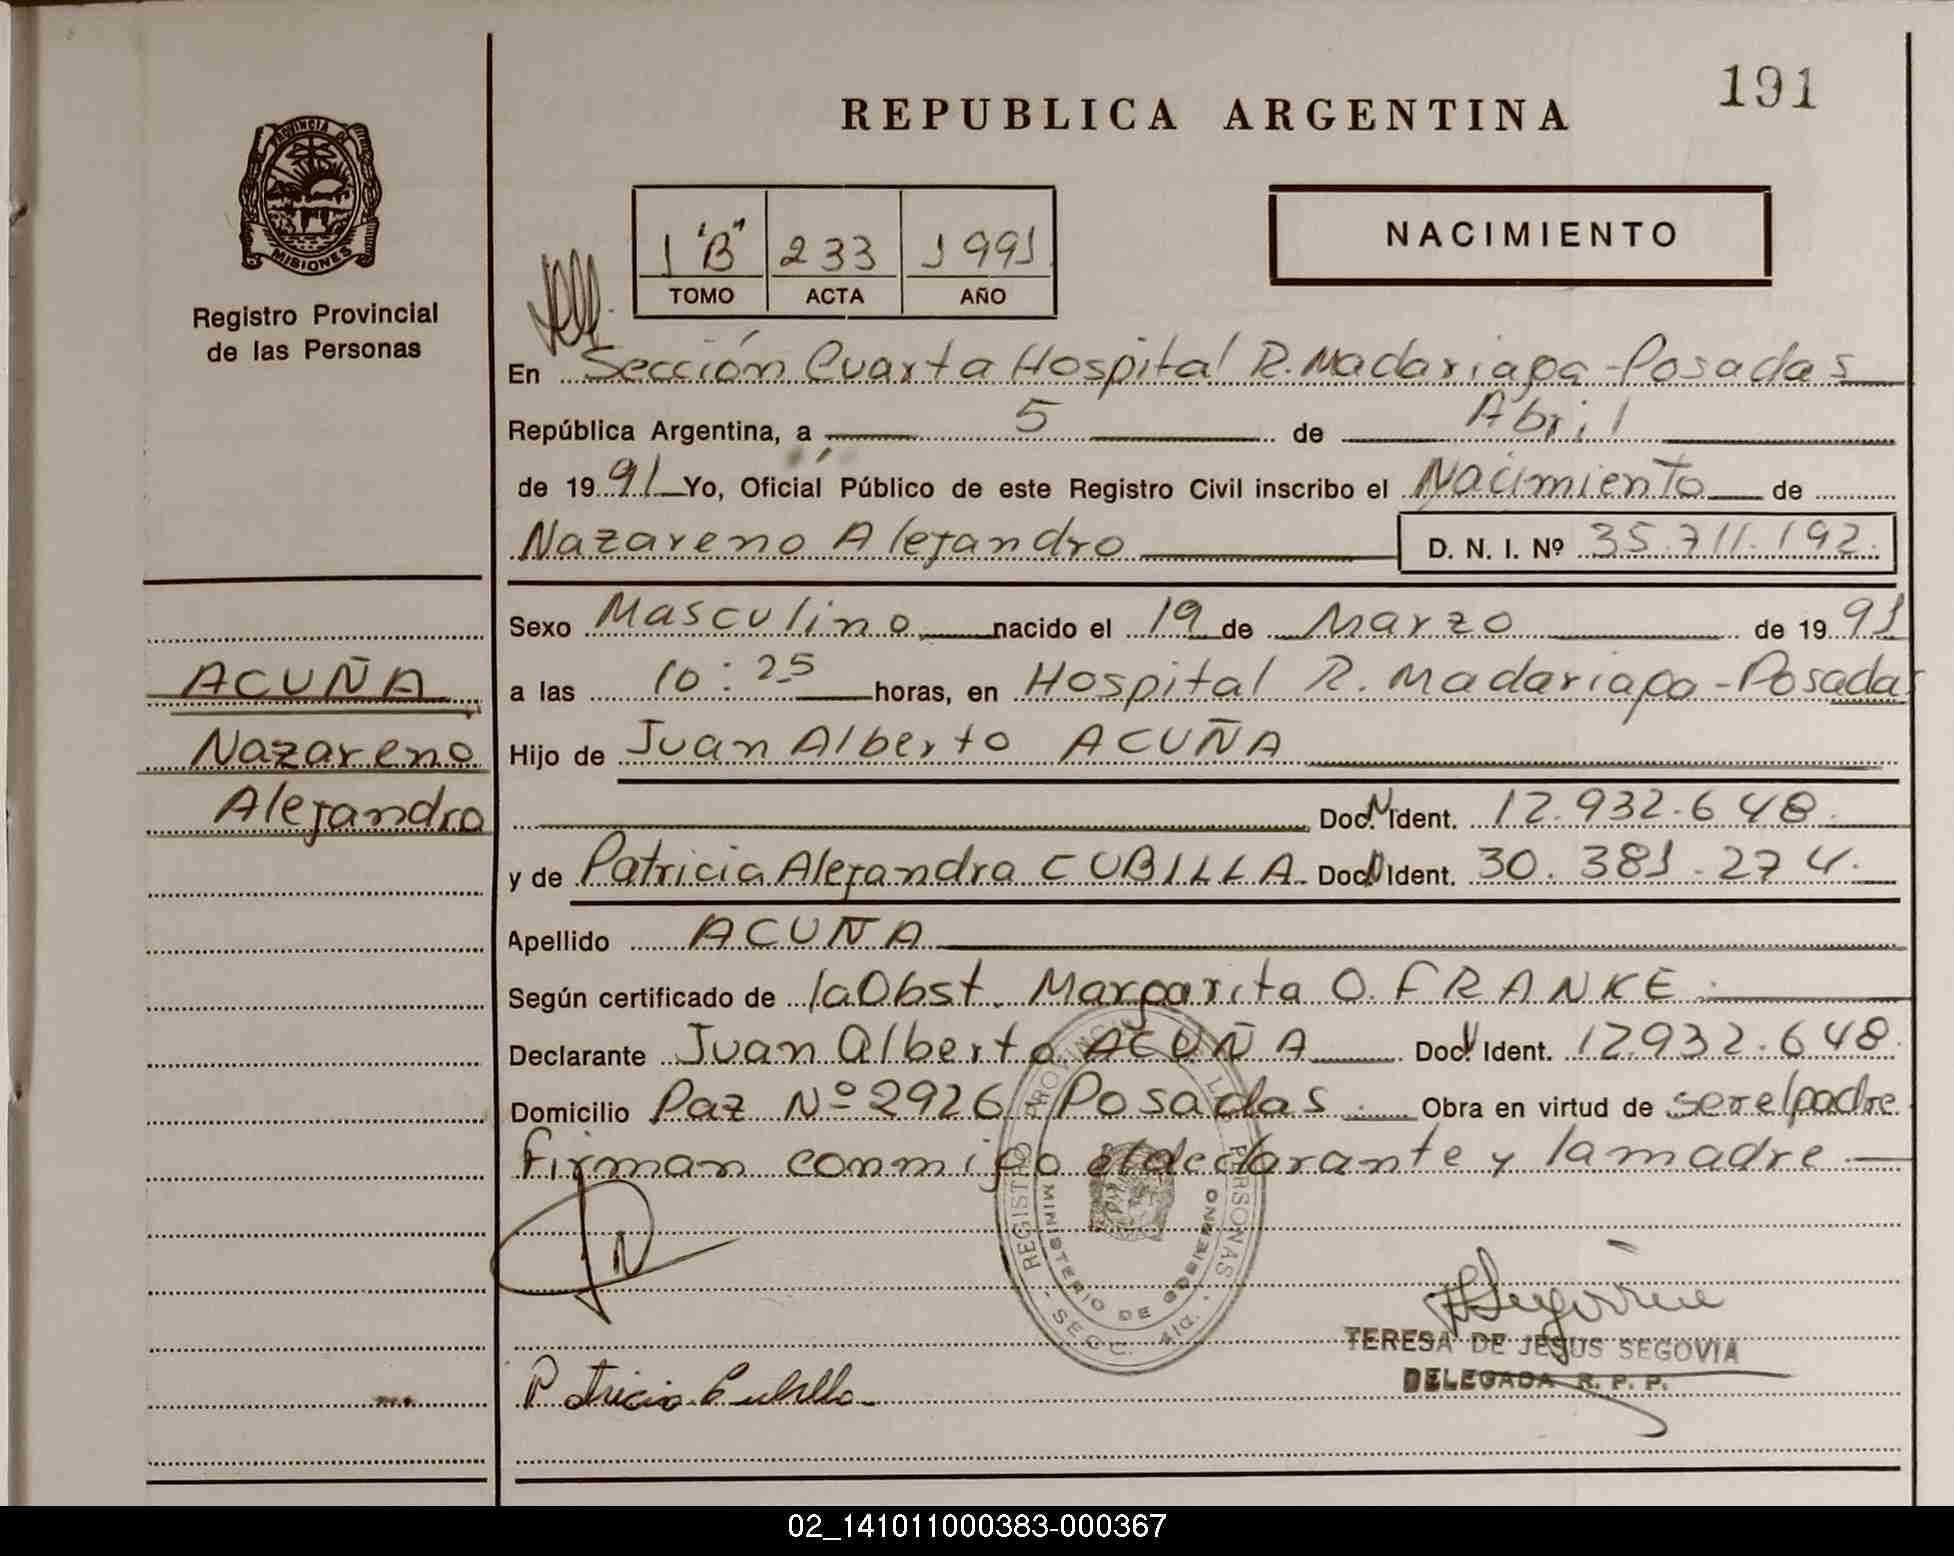 191
REPUBLICA ARGENTINA
PROVINCIA DE
MISIONES
Registro Provincial
de las Personas
1 "B" 233 1991
TOMO ACTA AÑO
NACIMIENTO
En Sección Cuarta Hospital R. Madariaga - Posadas
República Argentina, a 5 de Abril
de 1991 Yo, Oficial Público de este Registro Civil inscribo el Nacimiento de
Nazareno Alejandro D. N. I. Nº 35.711.192.
Sexo Masculino nacido el 19 de Marzo de 1991
a las 10:25 horas, en Hospital R. Madariaga - Posadas
Hijo de Juan Alberto ACUÑA
Doc. N. Ident. 12.932.648.
y de Patricia Alejandra CUBILLA. Doc. N Ident. 30.381.274.
Apellido ACUÑA
Según certificado de la Obst. Margarita O. FRANKE.
Declarante Juan Alberto ACUÑA Doc. N Ident. 12.932.648.
Domicilio Paz Nº 2926 Posadas. Obra en virtud de ser el padre
Firman conmigo el declarante y la madre.
ACUÑA
Nazareno
Alejandro
REGISTRO PROVINCIAL DE LAS PERSONAS
MINISTERIO DE GOBIERNO
SECC. 4ta.
Patricia Cubilla
TERESA DE JESUS SEGOVIA
DELEGADA R. P. P.
02_141011000383-000367